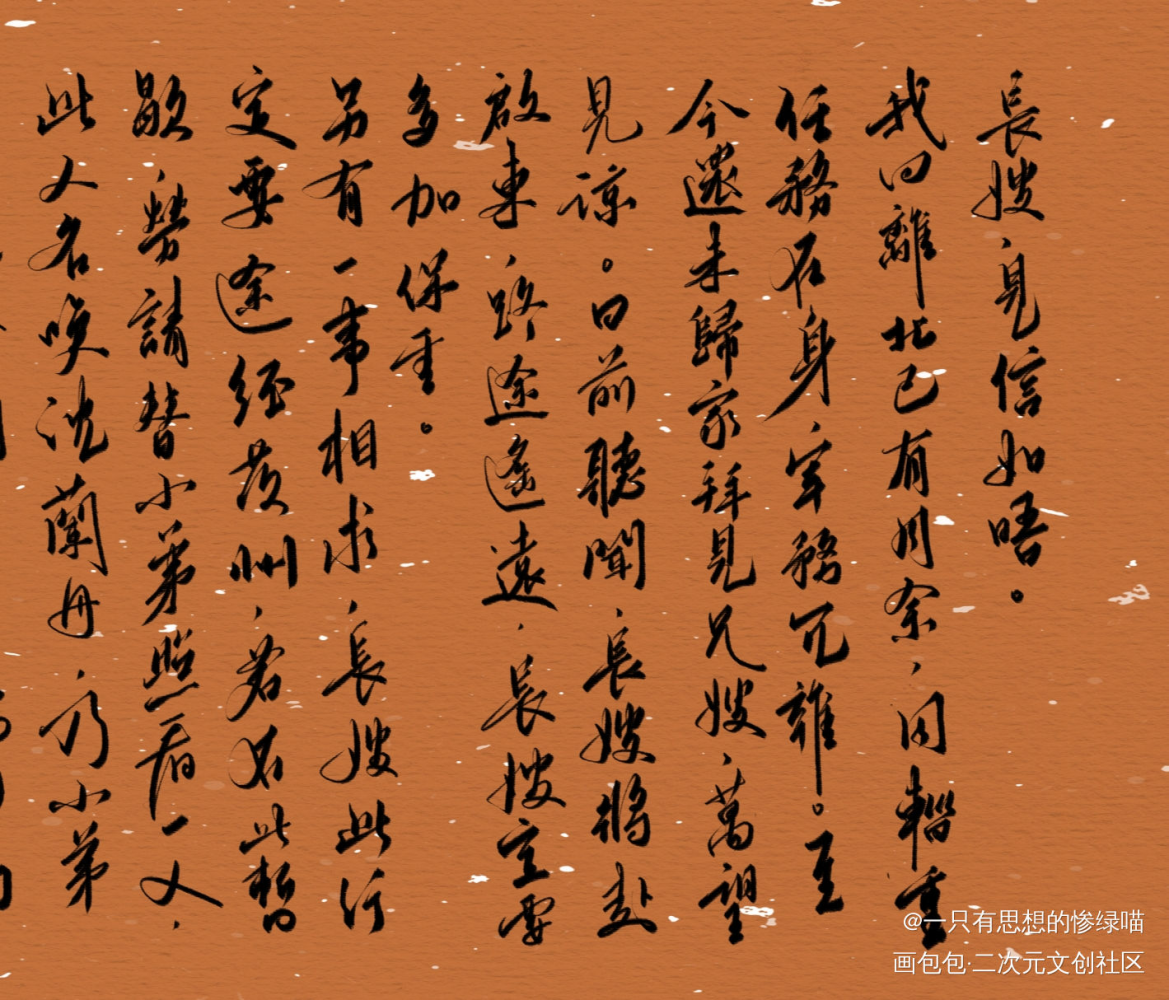 長嫂，見信如晤。
我回離北已有月余，因輜重
任務在身，軍務冗雜。至
今還未歸家拜見兄嫂，萬望
見諒。日前聽聞，長嫂將赴
啟東，路途遙遠，長嫂定要
多加保重。
另有一事相求，長嫂此行
定要途经茨州，若在此暫
歇，勞請替小弟照看一人，
此人名喚沈蘭舟，乃小弟
@一只有思想的惨绿喵
画包包·二次元文创社区